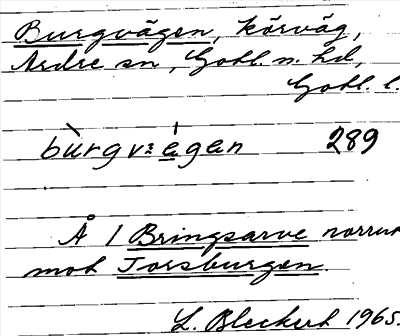 Burgvägen, körväg,
Ardre sn, Gotl. n. hd,
Gotl. l.
289
Å 1 Bringsarve norrut
mot Torsburgen.
1965.